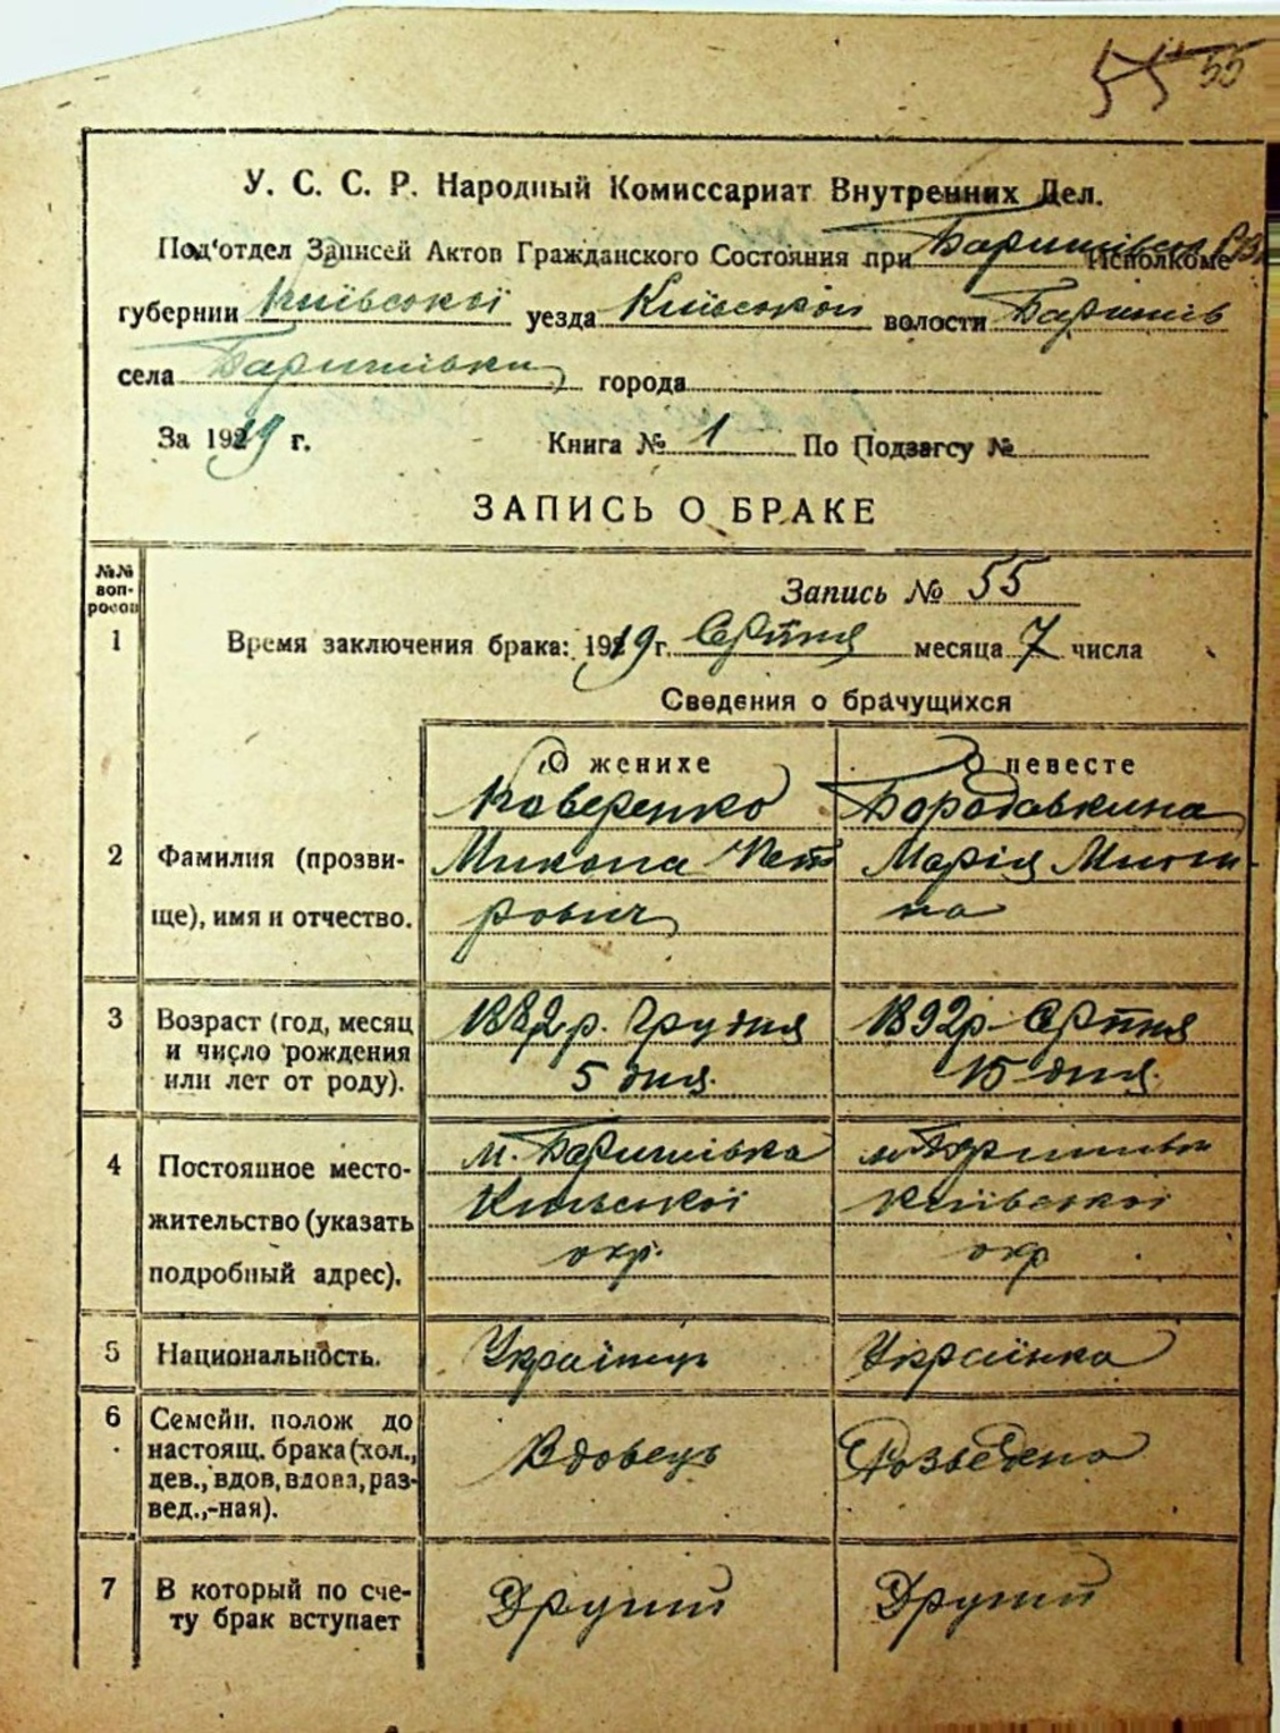 55 55
У. С. С. Р. Народный Комиссариат Внутренних Дел.
Под‘отдел Записей Актов Гражданского Состояния при Исполкоме
губернии Київської уезда Київської волости Баришів
села Баришівки города
За 1919 г. Книга № 1 По Подзагсу №
ЗАПИСЬ О БРАКЕ
№№ вопросов
Запись № 55
1 Время заключения брака: 1919 г. Серпня месяца 7 числа
Сведения о брачущихся
О женихе О невесте
Коверенко Бородавкина
2 Фамилия (прозви- Микола Пет Марія
ще), имя и отчество. рович на
3 Возраст (год, месяц 1882 р. Грудня 1892 р. Серпня
и число рождения 5 дня. 15 дня.
или лет от роду).
м. Баришівка м. Баришівка
4 Постоянное место-
жительство (указать Київської Київської
подробный адрес). окр. окр
5 Национальность. Українец Українка
6 Семейн. полож до
настоящ. брака (хол., Вдовець Розведена
дев., вдов, вдова, раз-
вед.,-ная).
7 В который по сче- Другий Другий
ту брак вступает